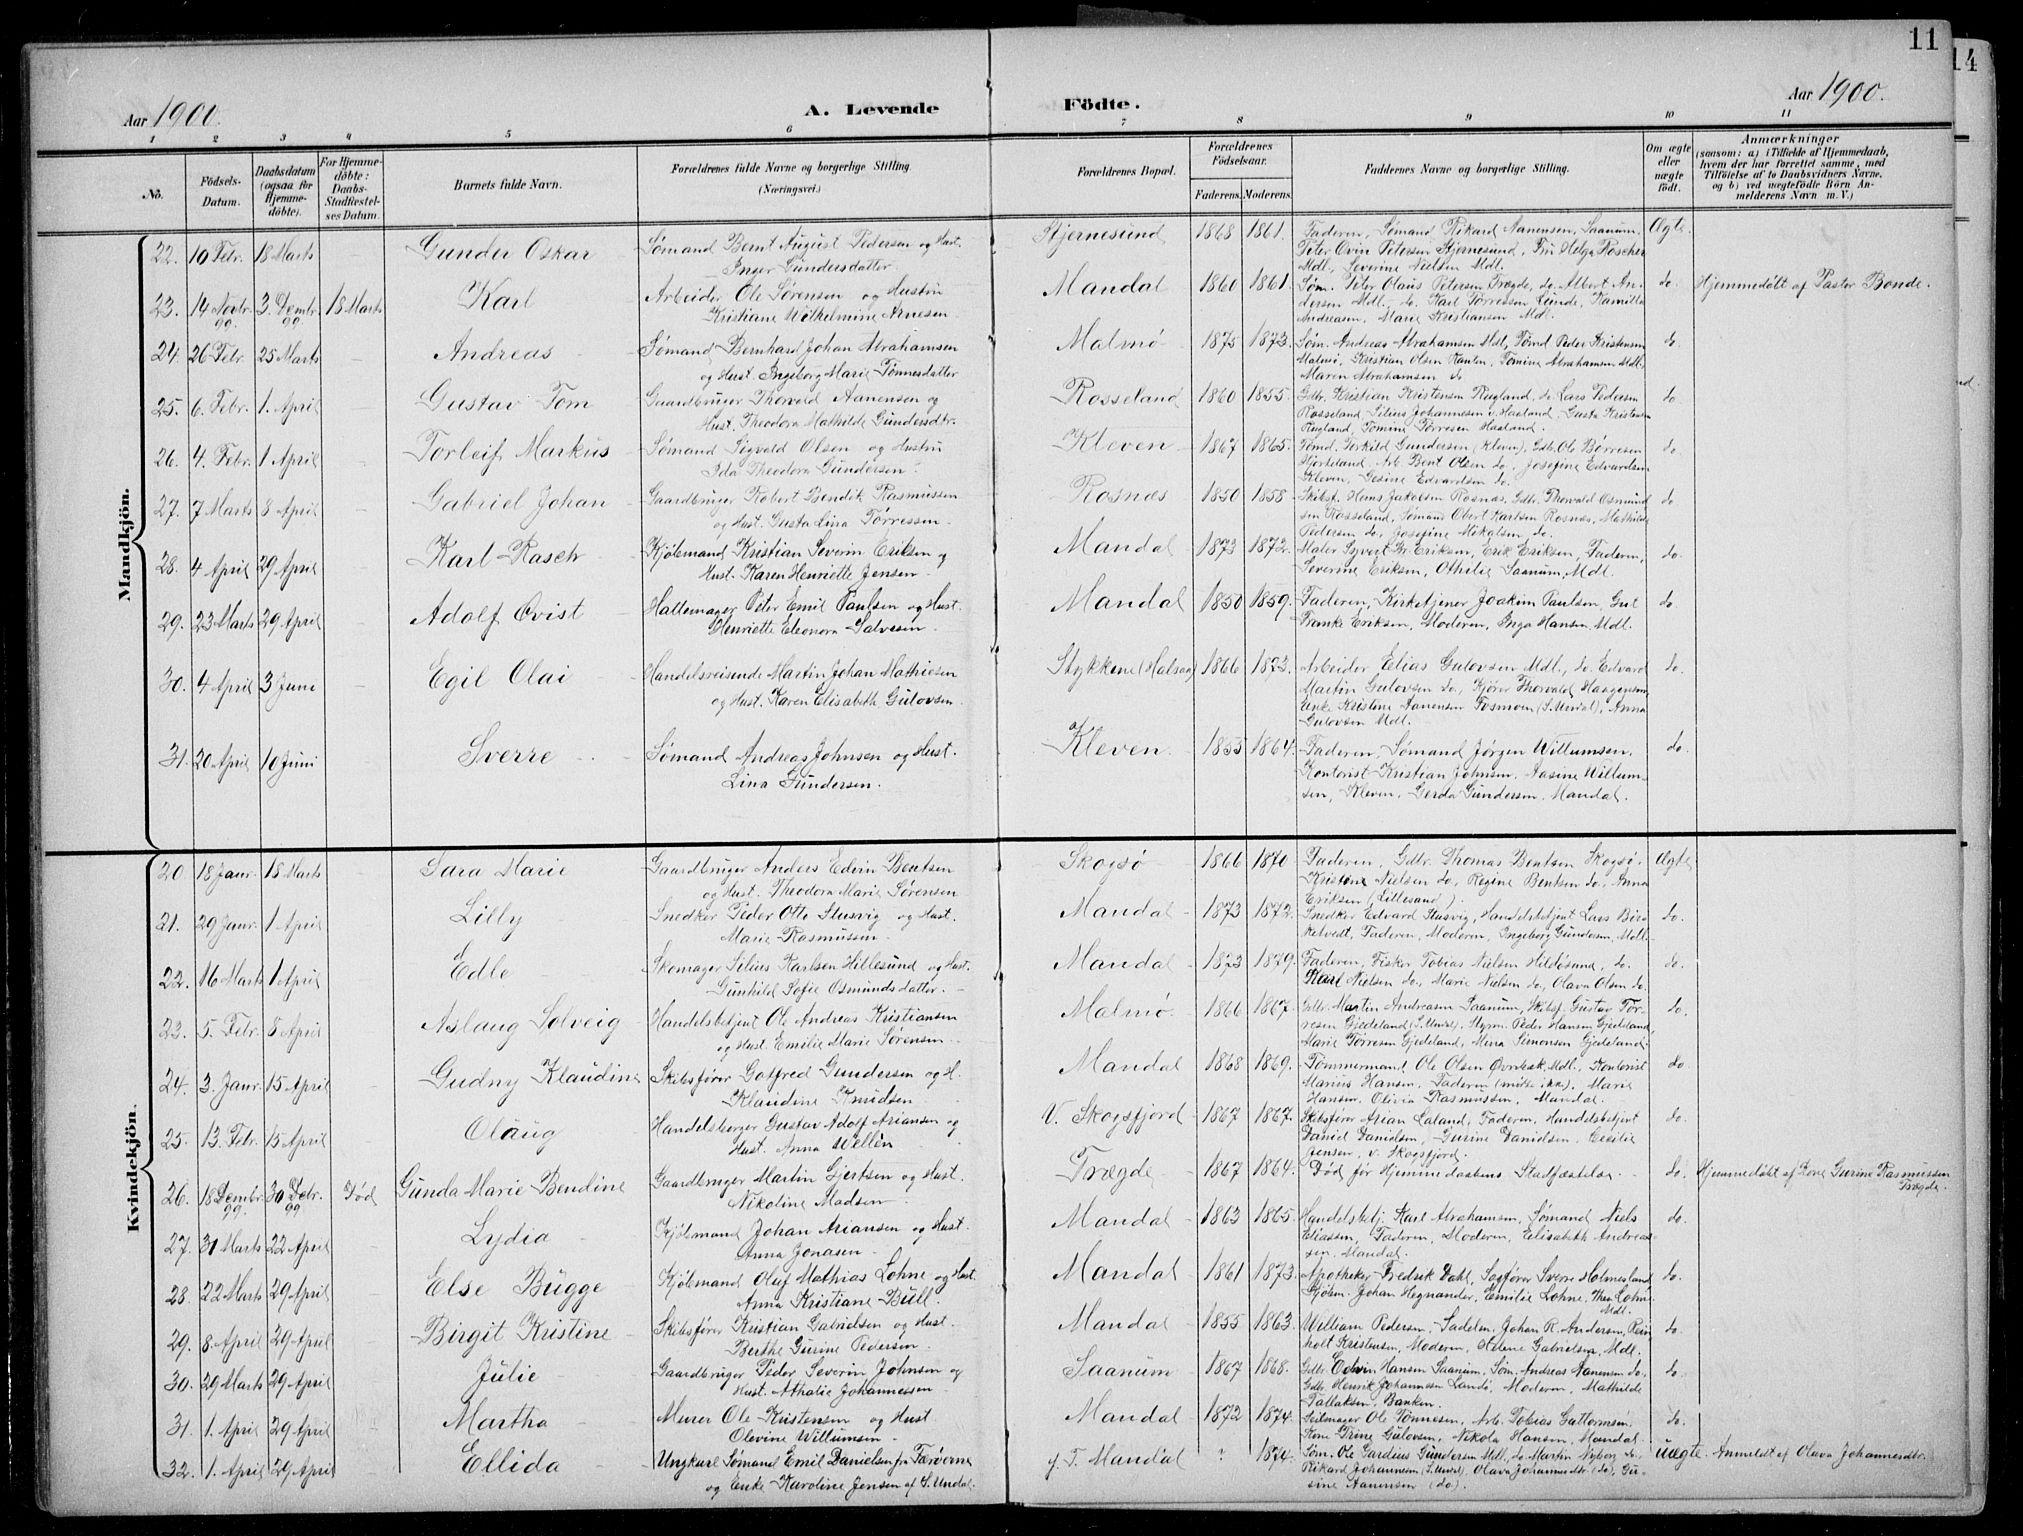 11
14
Aar 1900.
A. Levende
Födte.
Aar 1900.
1 2 3 4 5 6 7 8 9 10 11
No.
Födsels-Datum.
Daabsdatum (ogsaa for Hjemme-döbte).
For Hjemme-döbte: Daabs-Stadfæstel-ses Datum.
Barnets fulde Navn.
Forældrenes fulde Navne og borgerlige Stilling. (Næringsvei.)
Forældrenes Bopæl.
Forældrenes Födselsaar.
Faderens. Moderens.
Faddernes Navne og borgerlige Stilling.
Om ægte eller uægte födt.
Anmærkninger
(saasom: a) i Tilfælde af Hjemmedaab, hvem der har forrettet samme, med Tilföielse af to Daabsvidners Navne, og b) ved uægtefödte Börn An-melderens Navn m. V.)
Mandkjön.
22. 10 Febr. 18 Marts Gunder Oskar Sømand Bernt August Pedersen og Hust. Stjernesund 1868 1861. Faderen, Sømand Rikard Aanensen, Saanum, Ægte
Inger Gundersdatter Peter Ovin Petersen Stjernesund, Fru Helga Roscher
Mdl., Severine Nielsen Mdl.
23. 14 Novbr. 99. 3 Dembr. 99 18 Marts Karl Arbeider Ole Sørensen og Hustru Mandal 1860 1861. Søm. Peter Olaus Petersen Trægde, do. Albert An- do. Hjemmedøbt af Pastor Bonde.
Kristiane Wilhelmine Arnesen. dersen Mdl., do. Karl Tørressen Lunde, Kamilla
Andreasen, Marie Kristiansen Mdl.
24. 26 Febr. 25 Marts Andreas Sømand Bernhard Johan Abrahamsen Malmø 1875 1873. Søm. Andreas Abrahamsen Mdl., Tømd. Peder Kristensen do.
og Hust. Ingeborg Marie Tønnesdatter Malmø, Kristian Olsen, Tomine Abrahamsen Mdl.
Maren Abrahamsen do
25. 6. Febr. 1. April Gustav Tom Gaardbruger Thorvald Aanensen og Rosseland 1860 1855. Gdbr. Kristian Kristensen Rugland, do. Lars Pedersen do.
Hust. Theodora Mathilde Gundersdtr. Rosseland, Silius Johannesen v. Haaland, Gusta Kristensen
Rugland, Tomine Tørresen Haaland.
26. 4. Febr. 1 April Torleif Markus Sømand Sigvald Olsen og Hustru Kleven 1867 1865. Tømd. Terkild Gundersen (Kleven), Gdb. Ole Børresen do.
Ida Theodora Gundersen. Hjorteland, Arb. Bent Olsen do., Josefine Edvardsen
Kleven, Gesine Edvardsen do.
27. 7 Marts 8 April Gabriel Johan Gaardbruger Robert Bendik Rasmussen Rosnæs 1850 1858 Skibsf. Hans Jakobsen Rosnæs, Gdb. Thorvald Osmund do
og Hust. Gusta Lina Tørressen. sen Rosseland, Sømand Obert Karlsen Rosnæs, Mathilde
Pedersen do, Josefine Mikalsen do.
28. 4 April 29 April Karl Rasch Kjøbmand Kristian Severin Eriksen og Mandal 1873 1872. Maler Syvert Kr. Eriksen, Erik Eriksen, Faderen, do.
Hust. Karen Henriette Jensen. Severine Eriksen, Othilie Saanum, Mdl.
29. 23 Marts 29 April Adolf Qvist Hattemager Peter Emil Paulsen og Hust. Mandal 1850 1859. Faderen, Kirketjener Joakim Paulsen, do
Henriette Eleonora Salvesen. Franke Eriksen, Moderen, Inga Hansen Mdl.
30. 4 April 3 Juni Egil Olai Handelsreisende Martin Johan Mathiesen Stykkene (Halsaa) 1866 1873. Arbeider Elias Gulovsen Mdl., do. Edvard do.
og Hust. Karen Elisabeth Gulovsen. Martin Gulovsen do., Kjører Thorvald Haagensen,
Enke Kristine Aanensen Fosmoen (S. Undal), Anna
Gulovsen Mdl.
31. 20 April 10 Juni Sverre Sømand Andreas Johnsen og Hust. Kleven 1855 1864. Faderen, Sømand Jørgen Willumsen, do.
Lina Gundersen. Kontorist Kristian Johnsen, Aasine Willum-
sen, Kleven, Gerda Gundersen, Mandal.
Kvindekjön.
20 18 Janr. 18 Marts Sara Marie Gaardbruger Anders Edvin Bentsen Skogsø 1866 1870 Faderen, Gdbr. Thomas Bentsen Skogsø, Ægte
og Hust. Theodora Marie Sørensen Kristine Nielsen do, Regine Bentsen do, Anna
Eriksen (Lillesand).
21. 29 Janr. 1 April Lilly Snedker Peder Otto Stusvig og Hust. Mandal 1873 1872. Snedker Edvard Stusvig, Handelsbetjent Lars Bir- do.
Marie Rasmussen. ketvedt, Faderen, Moderen, Ingeborg Gundersen, Mdl.
22. 16 Marts 1 April Edle Skomager Silius Karlsen Hillesund og Hust. Mandal 1873 1879. Faderen, Fisker Tobias Nielsen Hildøsund, do. do.
Gunhild Sofie Osmundsdatter. Karl Nielsen do, Marie Nielsen do, Olava Olsen do.
23. 5. Febr. 8 April Aslaug Solveig Handelsbetjent Ole Andreas Kristiansen Malmø. 1866 1867. Gdbr. Martin Andreasen Saanum, Skibsf. Gustav Tør- do.
og Hust. Emilie Marie Sørensen resen Gjedeland (S. Undal), Styrm. Peder Hansen Gjedeland,
Marie Tørresen Gjedeland, Mina Simonsen Gjedeland.
24. 3. Janr. 15 April Gudny Klaudine Skibsfører Gotfred Gundersen og H. Mandal 1868 1869. Tømmermand Ole Olsen Øvrebæk, Mdl., Kontorist do
Klaudine Knudsen Marius Hansen, Faderen (møtte ikke), Marie
Hansen, Olivia Rasmussen, Mandal.
25. 13. Febr. 15 April Olaug Handelsborger Gustav Adolf Ariansen og V. Skogsfjord 1867 1867. Skibsfører Arian Laland, Faderen, Handelsbetjent do.
Hust. Anna Wellén David Danielsen, Gurine Danielsen, Cecilie
Jensen, v. Skogsfjord.
26. 18 Dembr. 99. 30 Debr. 99 Død Gunda Marie Bendine Gaardbruger Martin Gjertsen og Hust. Trægde 1867 1864. Død før Hjemmedaabens Stadfæstelse. do. Hjemmedøbt af Kone Gurine Rasmussen
Nikoline Madsen Trægde.
27. 31 Marts 22 April Lydia Kjøbmand Johan Ariansen og Hust. Mandal 1863 1865. Handelsbetj. Karl Abrahamsen, Sømand Niels do.
Anna Jonasen Eliassen, Faderen, Moderen, Elisabeth Andreas-
sen, Mandal.
28. 22 Marts 29 April Else Bugge Kjøbmand Oluf Mathias Lohne og Hust. Mandal 1861 1873. Apotheker Fredrik Dahl, Sagfører Sverre Holmesland do.
Anna Kristiane Bull. Kjøbm. Johan Hegnander, Emilie Lohne, Thea Lohne
Mdl.
29. 8. April 29 April Birgit Kristine Skibsfører Kristian Gabrielsen og Hust. Mandal 1855 1863. William Pedersen, Sadelm. Johan R. Andersen, Rein do.
Berthe Gurine Pedersen holt Kristensen, Moderen, Helene Gabrielsen, Mdl.
30. 29 Marts 29 April Julie Gaardbruger Peder Severin Johnsen og Saanum 1867 1868. Gdbr. Edvin Hansen Saanum, Søm. Andreas Aanensen do. do.
Hust. Athalie Johannessen Gdbr. Henrik Johannessen Landø, Moderen, Mathilde
Tallaksen, Banken.
31. 1. April 29 April Martha Murer Ole Kristensen og Hust Mandal 1872 1874. Seilmager Ole Tønnesen, Arb. Tobias Guttormsen, do.
Olevine Willumsen Kone Trine Gulovsen, Nikola Hansen, Mandal.
32. 1. April 29 April Ellida Ungkarl Sømand Emil Danielsen fra Færøerne g. T. Mandal ? 1874. Søm. Ole Sardius Gundersen Mdl., do. Martin Nyborg do. uægte Anmeldt af Olava Johannesdtr.
og Enke Karoline Jensen af S. Undal. Rikard Johannesen (S. Undal), Olava Johannesdtr (do), Gu-
sine Aanensen (do).